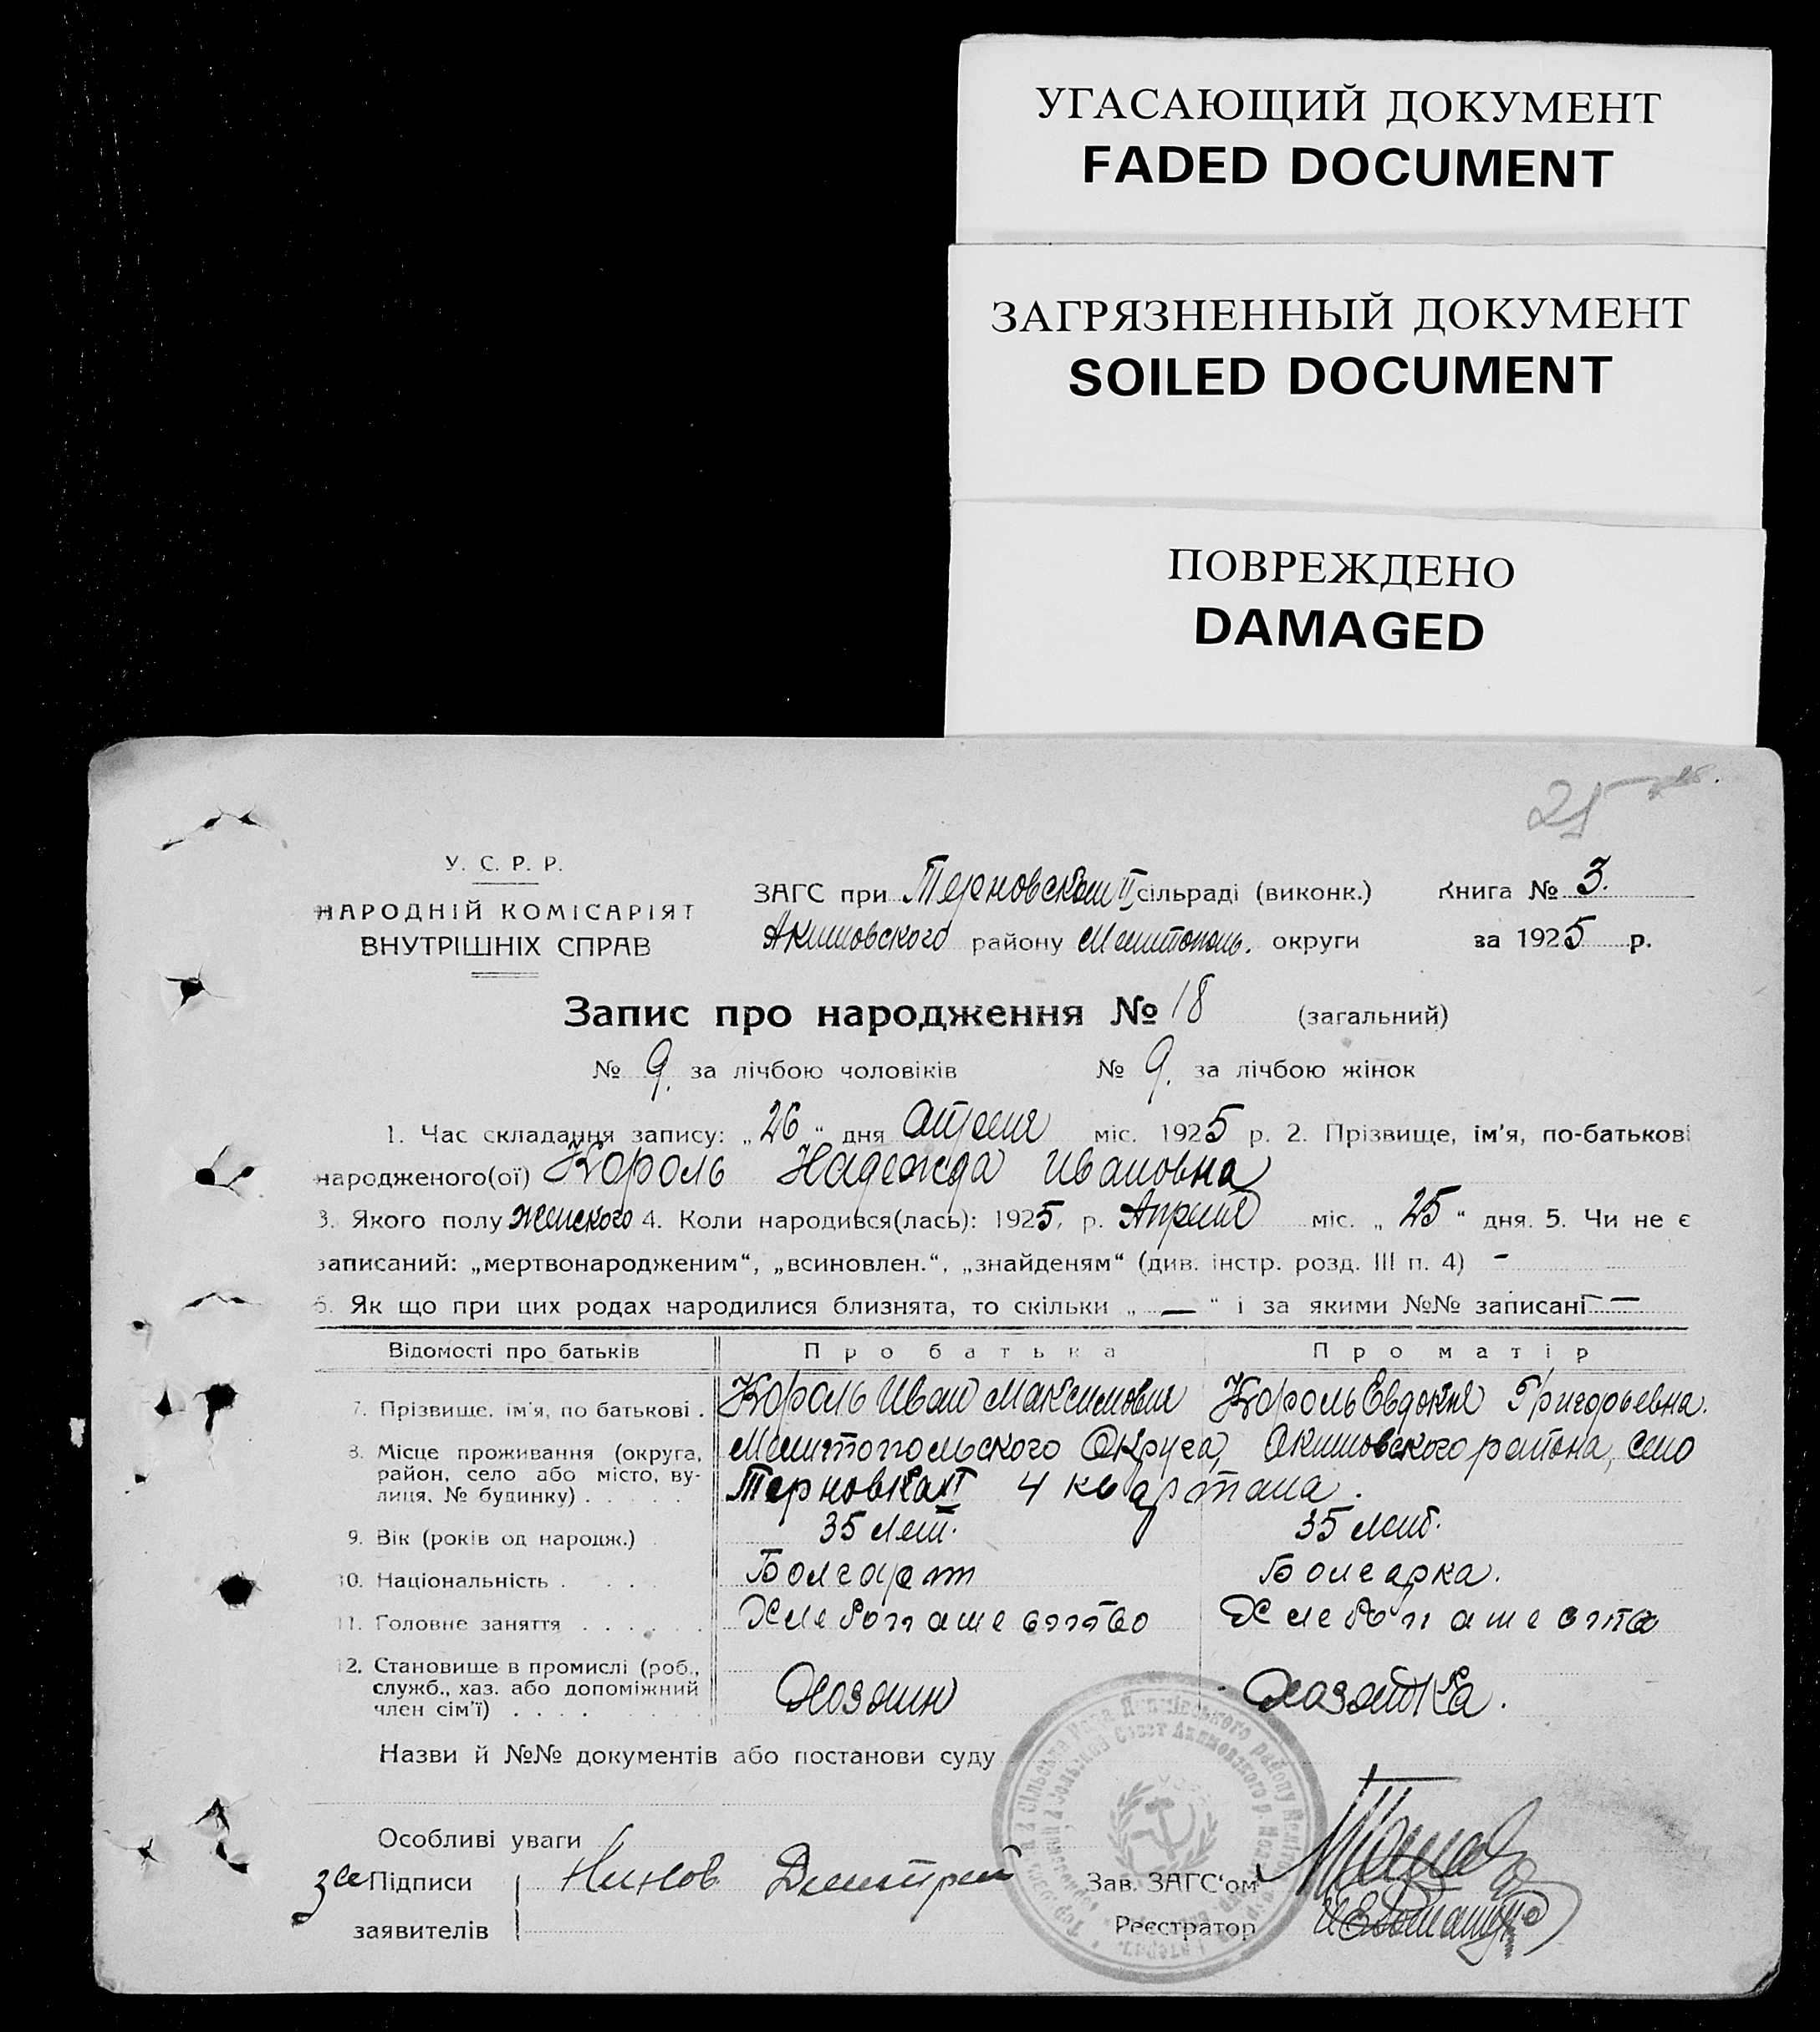 УГАСАЮЩИЙ ДОКУМЕНТ
FADED DOCUMENT
ЗАГРЯЗНЕННЫЙ ДОКУМЕНТ
SOILED DOCUMENT
ПОВРЕЖДЕНО
DAMAGED
25
У. С. Р. Р.
НАРОДНІЙ КОМІСАРІЯТ
ВНУТРІШНІХ СПРАВ
ЗАГС при Терновском II сільраді (виконк.) Книга № 3.
Акимовского району Мелитополь. округи за 1925 р.
Запис про народження № 18 (загальний)
№ 9. за лічбою чоловіків № 9. за лічбою жінок
1. Час складання запису: „26“ дня апреля міс. 1925 р. 2. Прізвище, ім'я, по-батькові
народженого(ої) Король Надежда Ивановна
3. Якого полу женского 4. Коли народився(лась): 1925, р. Апреля міс. „25“ дня. 5. Чи не є
записаний: „мертвонародженим“, „всиновлен.“, „знайденям“ (див. інстр. розд. III п. 4) -
6. Як що при цих родах народилися близнята, то скільки „—“ і за якими №№ записані —
Відомості про батьків Про батька Про матір
7. Прізвище, ім'я, по батькові . Король Иван Максимович Король Евдокия Григорьевна.
8. Місце проживання (округа, район, село або місто, вулиця, № будинку) . . . . . Мелитопольского Округа, Акимовского района, село
Терновка II 4 квартала.
9. Вік (років од народж.) 35 лет. 35 лет.
10. Національність . . . Болгарин Болгарка.
11. Головне заняття . . . . . . Хлебопашество Хлебопашество
12. Становище в промислі (роб., служб., хаз. або допоміжний член сім'ї) . . . . Хозяин Хозяйка.
Назви й №№ документів або постанови суду
Особливі уваги
за Підписи Нинов Дмитрий Зав. ЗАГС'ом
заявителів Реєстратор